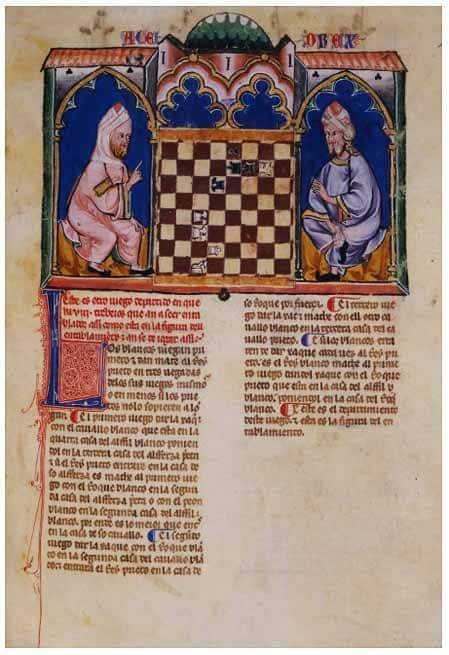 Este es otro iuego departido en que
ha .VIII. trebeios que an a seer enta
blados assi como esta en la figura del
entablamiento. & an se de iogar assi.
Los blancos iuegan pri
mero & dan mate al Rey
prieto en tres uegadas
delos sus iuegos mismos
o en menos si los prie
tos nolo sopieren alo
gar. El primero iuego dar la xaque
con el cauallo blanco que esta en la
quarta casa del alffil blanco ponien
dol en la tercera casa del alfferza prieta
& si el Rey prieto entrare en la casa de
so alfferza es mathe al primero iue
go con el Roque blanco en la segun
da casa del alfferza prieta o con el peon
blanco en la segunda casa del alffil
blanco. por ende es lo meior que entre
en la casa de so cauallo. El segundo
iuego dar la xaque con el Roque blan
co en la segunda casa del cauallo blan
co & entrara el Rey prieto en la casa de
so Roque por fuerça. El tercero iue
go dar la xac & mathe con el otro ca
uallo blanco en la tercera casa del ca
uallo prieto. E si los blancos erra
ren de dar xaque cada uez al Rey prie
to es el Rey blanco mathe al prime
ro iuego xaque con el Roque
prieto que esta en la casa del alffil
blanco. poniendol en la casa del Rey
blanco. & este es el departimiento
deste iuego. & esta es la figura del en
tablamiento.